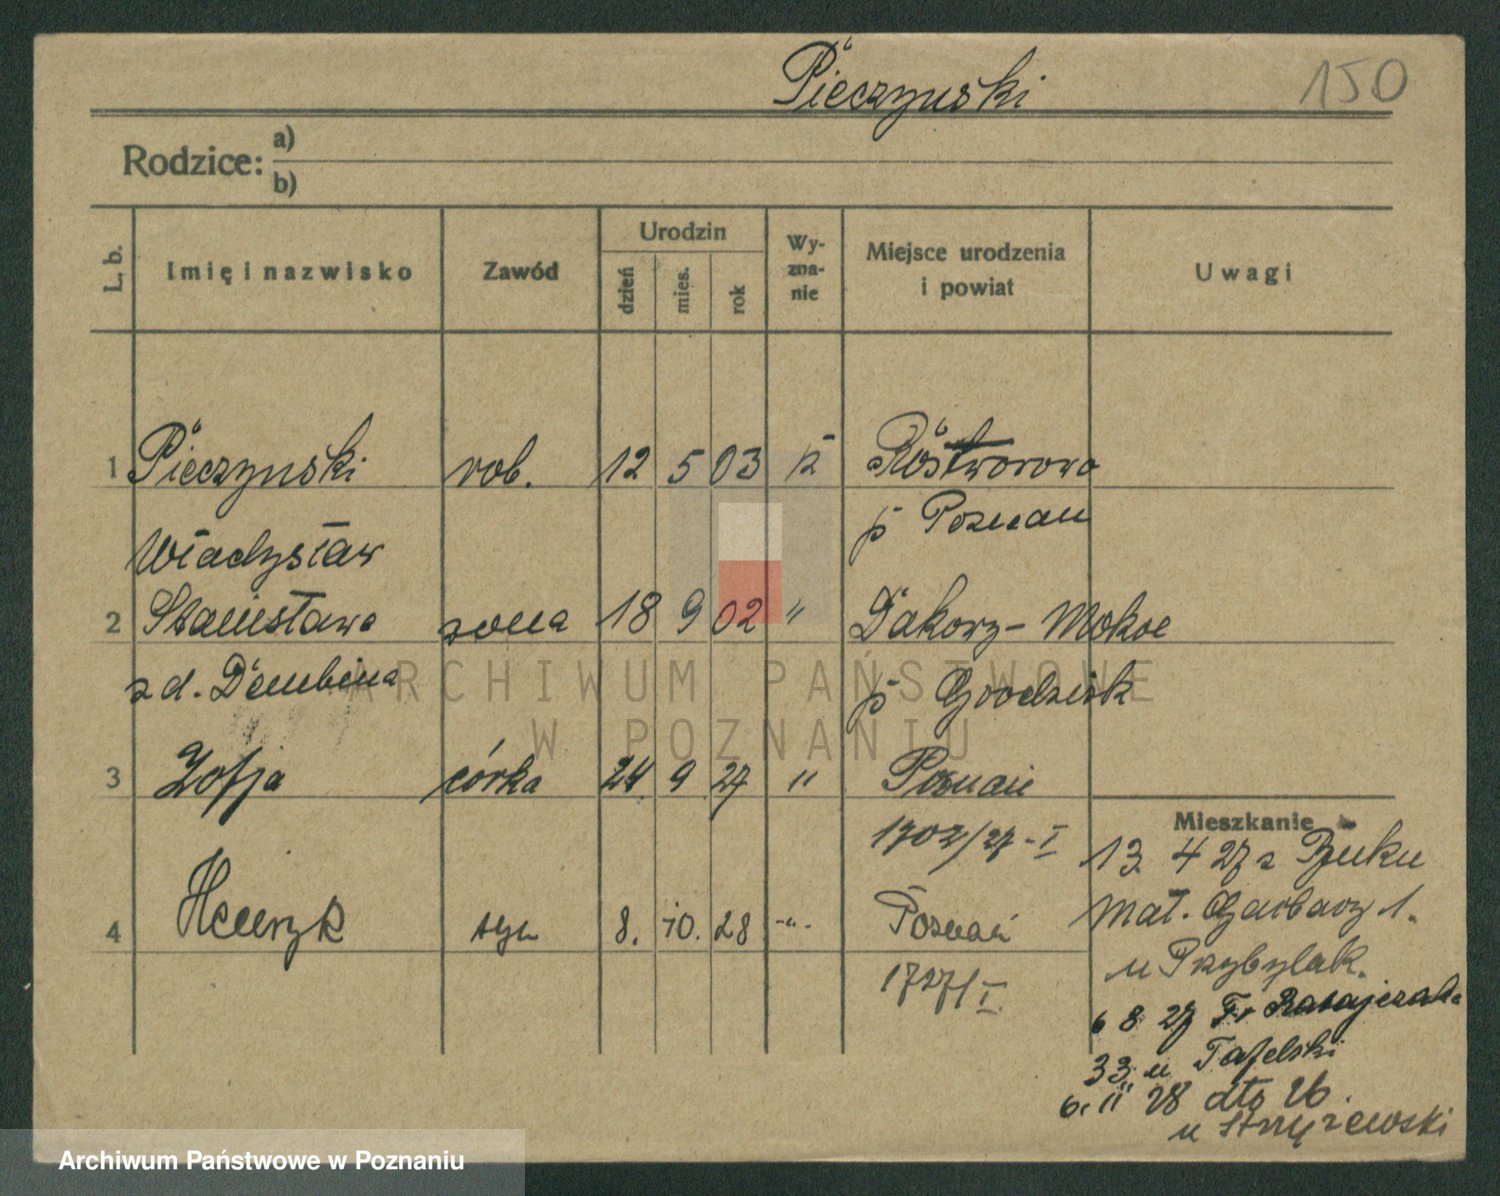 Pieczyński
150
Rodzice: a)
b)
L. b.
Imię i nazwisko
Zawód
Urodzin
dzień
mies.
rok
Wy-
zna-
nie
Miejsce urodzenia
i powiat
Uwagi
1 Pieczyński rob. 12 5 03 k Rostworowo
Władysław p Poznań
2 Stanisława żona 18 9 02 " Dakowy-Mokre
z d. Dembina p Grodzisk
3 Zofja córka 24 9 27 " Poznań
1702/27-I
4 Henryk syn 8. 10. 28 -"- Poznań
1727/I
Mieszkanie
13. 4 27 z Buku
Mał. Garbary 1.
u Przybylak.
6 8 27 Fr Ratajczaka
33 u Tafelski
6. 11 28 dto 26.
u Strzyżewski
ARCHIWUM PAŃSTWOWE
W POZNANIU
Archiwum Państwowe w Poznaniu